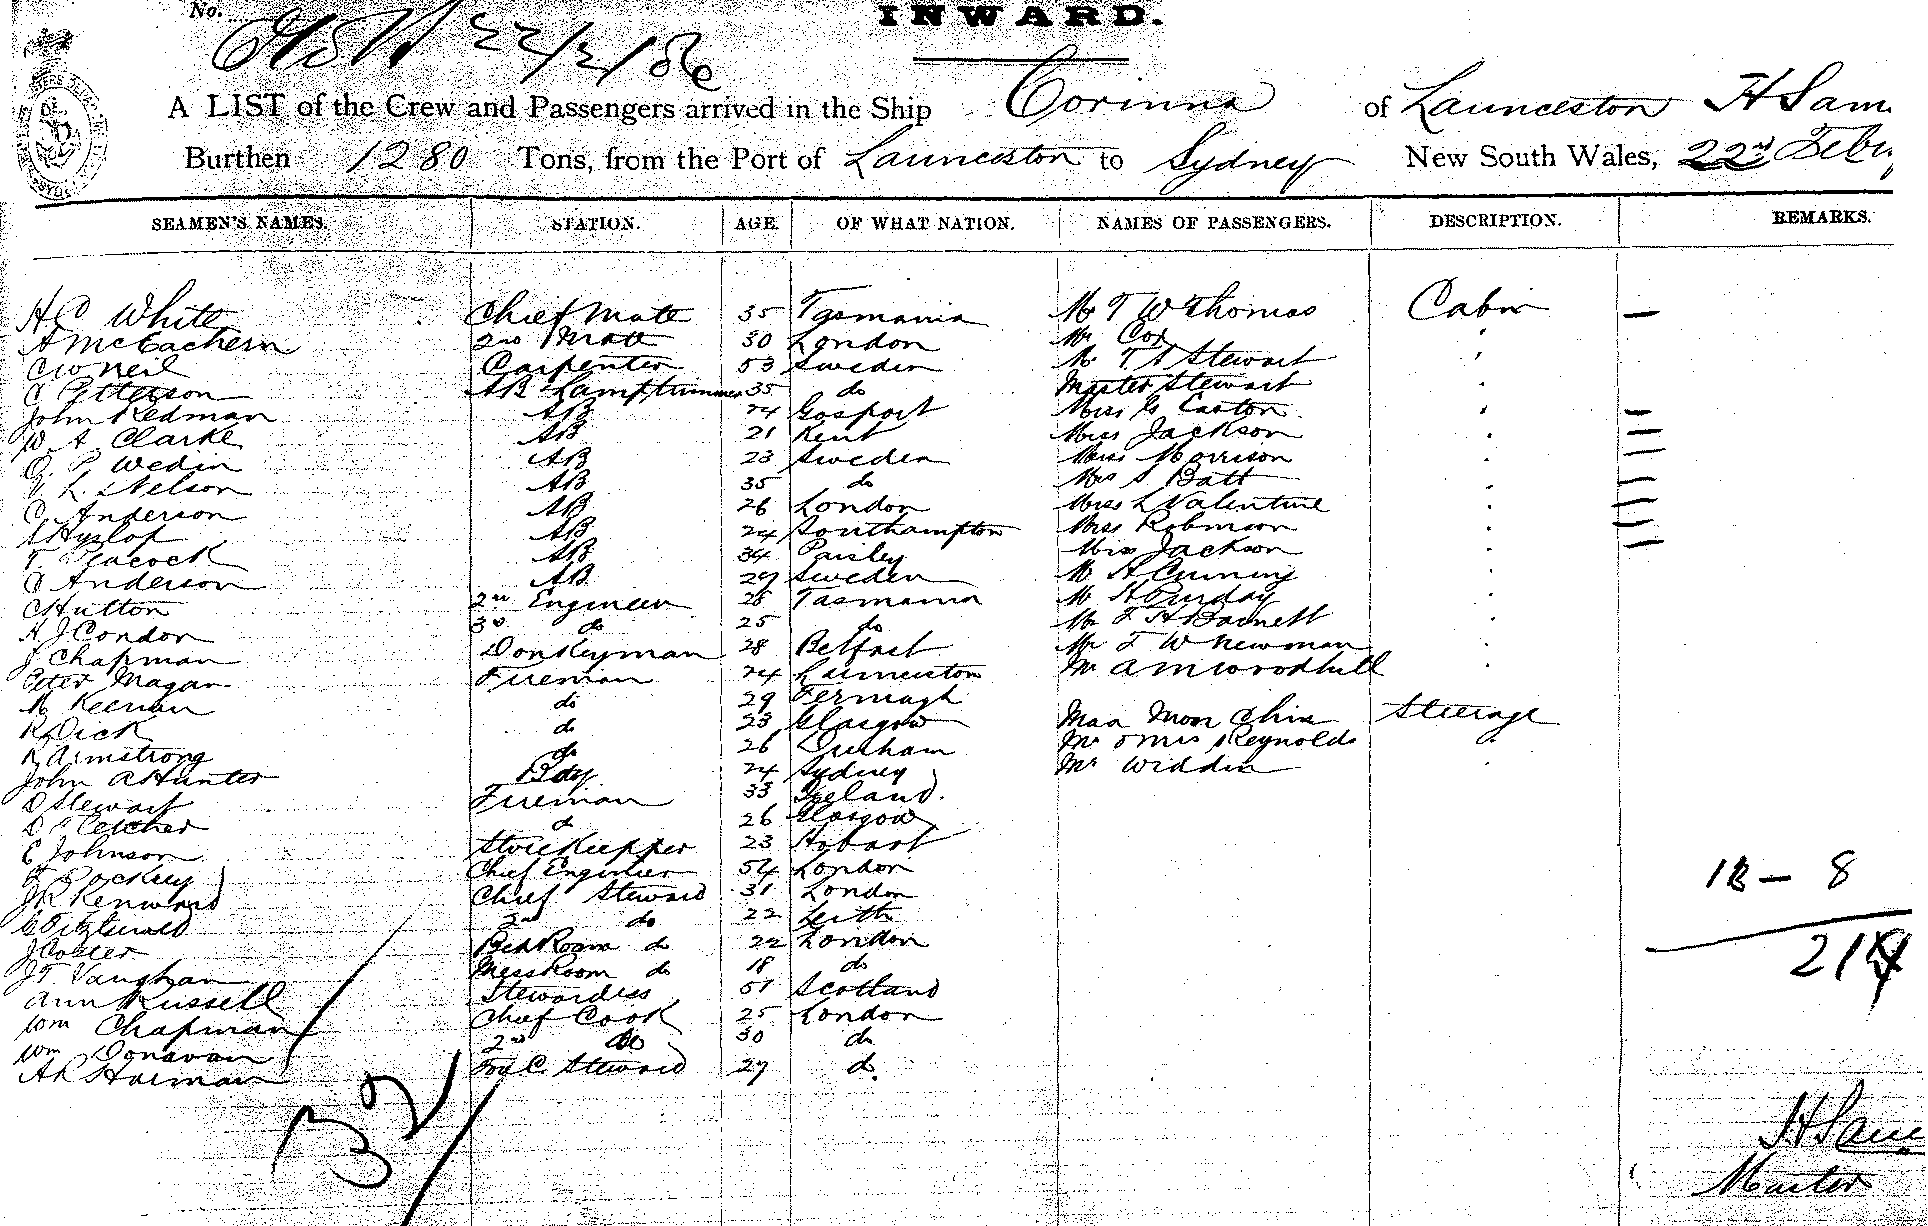 No.
INWARD.
22/2/86
A LIST of the Crew and Passengers arrived in the Ship Corinna of Launceston H Sam
Burthen 1280 Tons, from the Port of Launceston to Sydney New South Wales, 22nd Feby
SEAMEN'S NAMES. STATION. AGE. OF WHAT NATION. NAMES OF PASSENGERS. DESCRIPTION. REMARKS.
H C White Chief Mate 35 Tasmania Mr T W Thomas Cabin —
A McEachern 2nd Mate 30 London Mr Cox
C W Neil Carpenter 53 Sweden Mr T A Stewart
C Petterson AB Lamptrimmer 35 do Master Stewart
John Redman AB 24 Gosport Miss G Easton —
W. A Clarke AB 21 Kent Miss Jackson
Wedin AB 23 Sweden Miss Morrison
L. Nelson AB 35 do Mrs S Batt
C Anderson AB 26 London Miss L Valentine
Hyslop AB 24 Southampton Miss Robinson
T Peacock AB 34 Paisley Miss Jackson
C Anderson AB 29 Sweden Mr A Cuming
C Hutton 2nd Engineer 28 Tasmania Mr H Purday
A J Condon 3rd do 25 do Mr F H Barnett
J Chapman Donkeyman 28 Belfast Mr F W Newman
Peter Magan Fireman 24 Launceston Mr A M Woodhill
M Keenan do 29 Fermagh
R Dick do 23 Glasgow Maa Mon Chin Steerage
R Armstrong do 26 Durham Mr & Mrs Reynolds
John A Hunter Boy 24 Sydney Mr Widdin
D Stewart Fireman 33 Ireland.
D Fletcher do 26 Glasgow
E Johnson Storekeepper 23 Hobart
F Rockey Chief Engineer 54 London
J R Kenward Chief Steward 31 London
C Fitzgerald 2nd do 22 Leith
J Coster Bed Room do 22 London
J T Vaughan Mess Room do 18 do
Ann Russell Stewardess 51 Scotland
Wm Chapman Chief Cook 25 London
Wm Donavan 2nd do 30 do
A R Harman For C Steward 29 do.
— 8
21
32
H Sam
Master